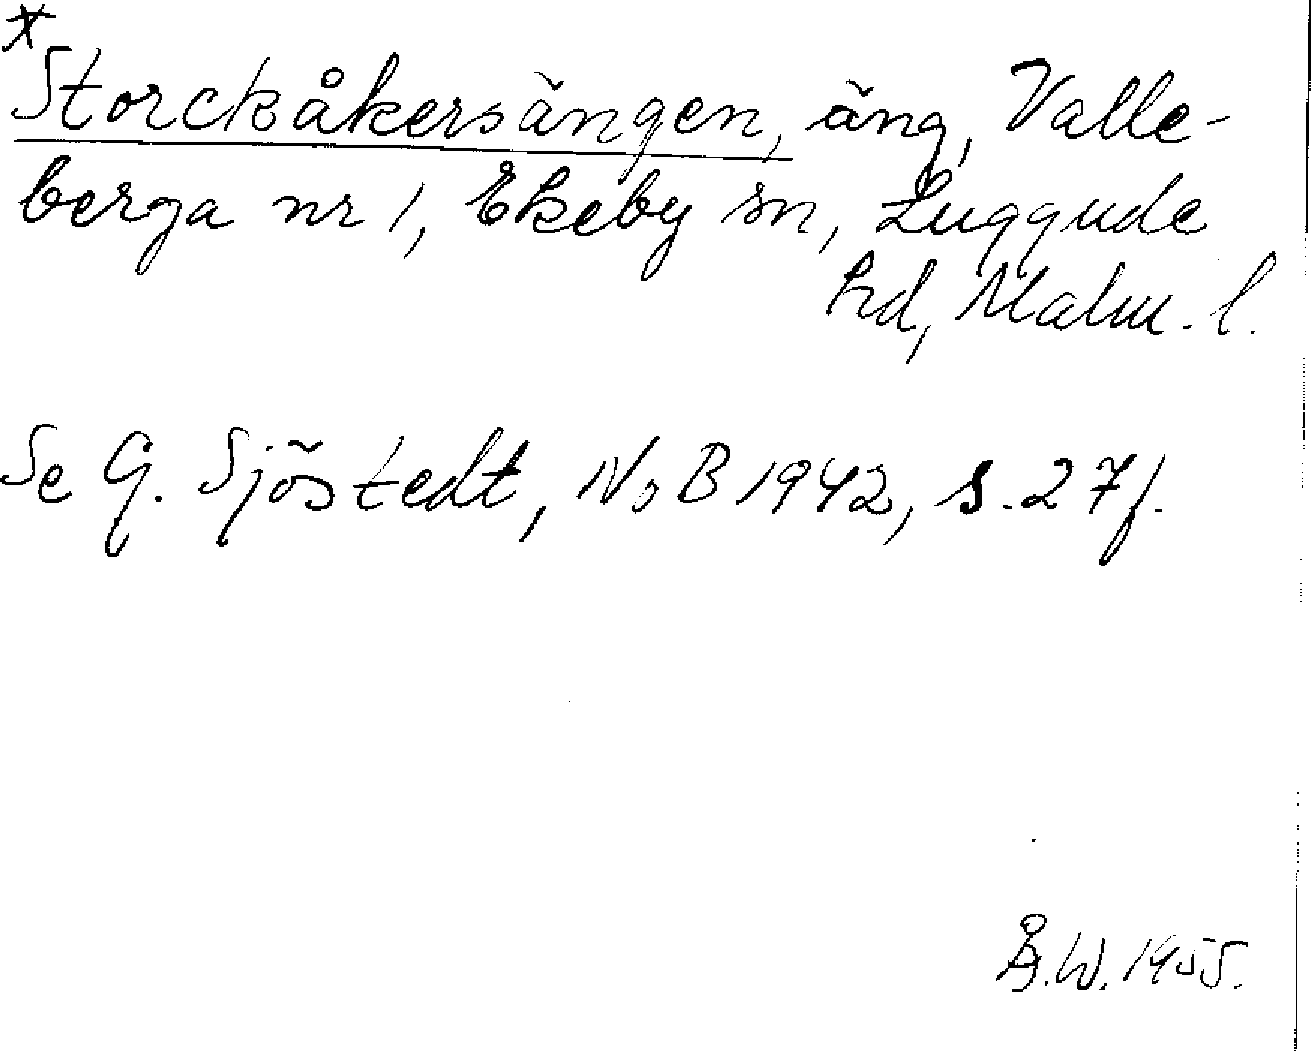 *
Storckåkersängen, äng, Valle-
berga nr 1, Ekeby sn, Luggude
hd, Malm. l.
Se G. Sjöstedt, NoB 1942, s. 27f.
Å.W. 1955.